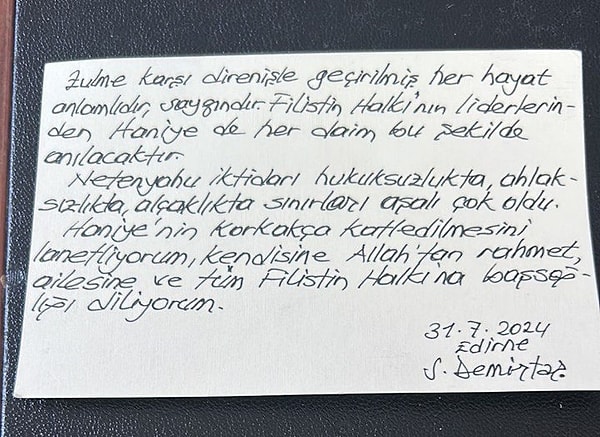 Zulme karşı direnişle geçirilmiş her hayat
anlamlıdır, saygındır. Filistin Halkı'nın liderlerin-
den Haniye de her daim bu şekilde
anılacaktır.
Netenyahu iktidarı hukuksuzlukta, ahlak-
sızlıkta, alçaklıkta sınırları aşalı çok oldu.
Haniye'nin korkakça katledilmesini
lanetliyorum, kendisine Allah'tan rahmet,
ailesine ve tüm Filistin Halkı'na başsağ-
lığı diliyorum.
31.7.2024
Edirne
S. Demirtaş